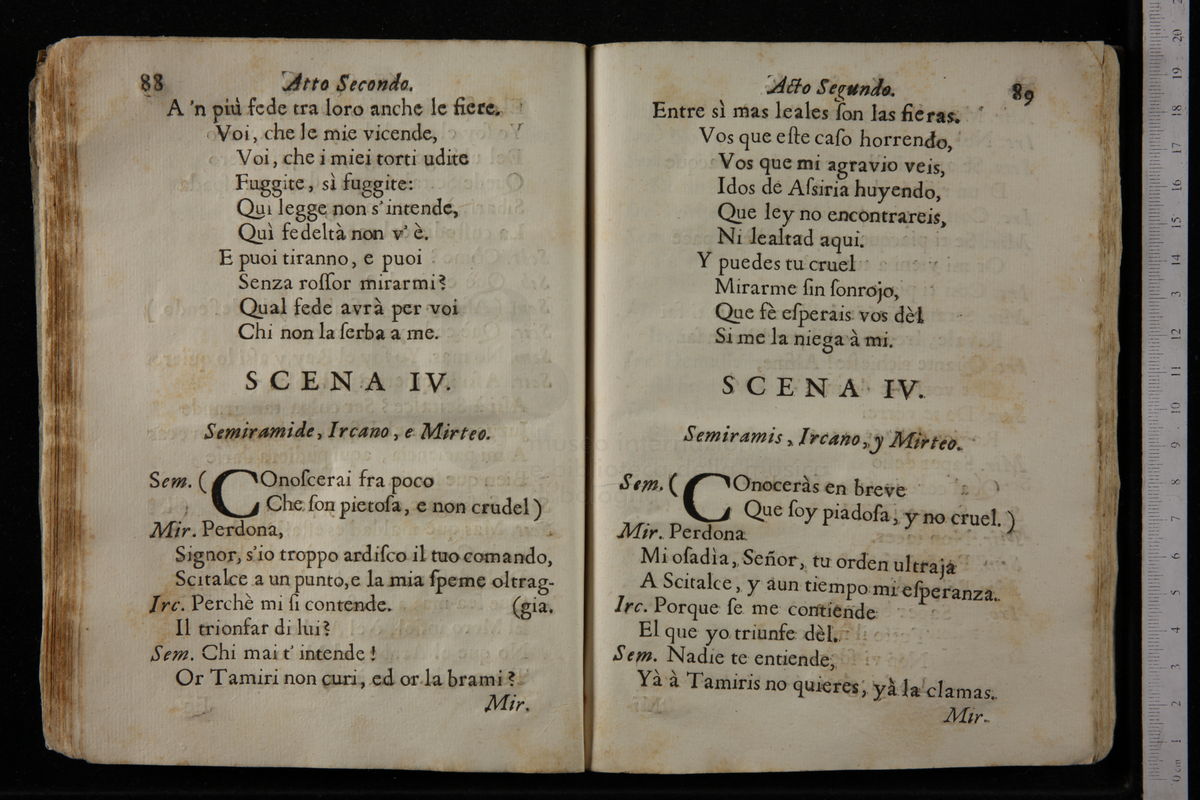 88
Atto Secondo.
A 'n più fede tra loro anche le fiere.
Voi, che le mie vicende,
Voi, che i miei torti udite
Fuggite, sì fuggite:
Qui legge non s'intende,
Quì fedeltà non v'è.
E puoi tiranno, e puoi
Senza roſſor mirarmi?
Qual fede avrà per voi
Chi non la ſerba a me.
SCENA IV.
Semiramide, Ircano, e Mirteo.
Sem. ( COnoſcerai fra poco
Che ſon pietoſa, e non crudel )
Mir. Perdona,
Signor, s'io troppo ardiſco il tuo comando,
Scitalce a un punto, e la mia ſpeme oltrag-
Irc. Perchè mi ſi contende. (gia.
Il trionfar di lui?
Sem. Chi mai t'intende!
Or Tamiri non curi, ed or la brami?
Mir.
Acto Segundo.
89
Entre sì mas leales ſon las fieras.
Vos que eſte caſo horrendo,
Vos que mi agravio veis,
Idos de Aſsiria huyendo,
Que ley no encontrareis,
Ni lealtad aqui.
Y puedes tu cruel
Mirarme ſin ſonrojo,
Que fè eſperais vos dèl
Si me la niega à mi.
SCENA IV.
Semiramis, Ircano, y Mirteo.
Sem. ( COnoceràs en breve
Que ſoy piadoſa, y no cruel. )
Mir. Perdona
Mi oſadìa, Señor, tu orden ultraja
A Scitalce, y aun tiempo mi eſperanza.
Irc. Porque ſe me contiende
El que yo triunfe dèl.
Sem. Nadie te entiende,
Yà à Tamiris no quieres, yà la clamas.
Mir.